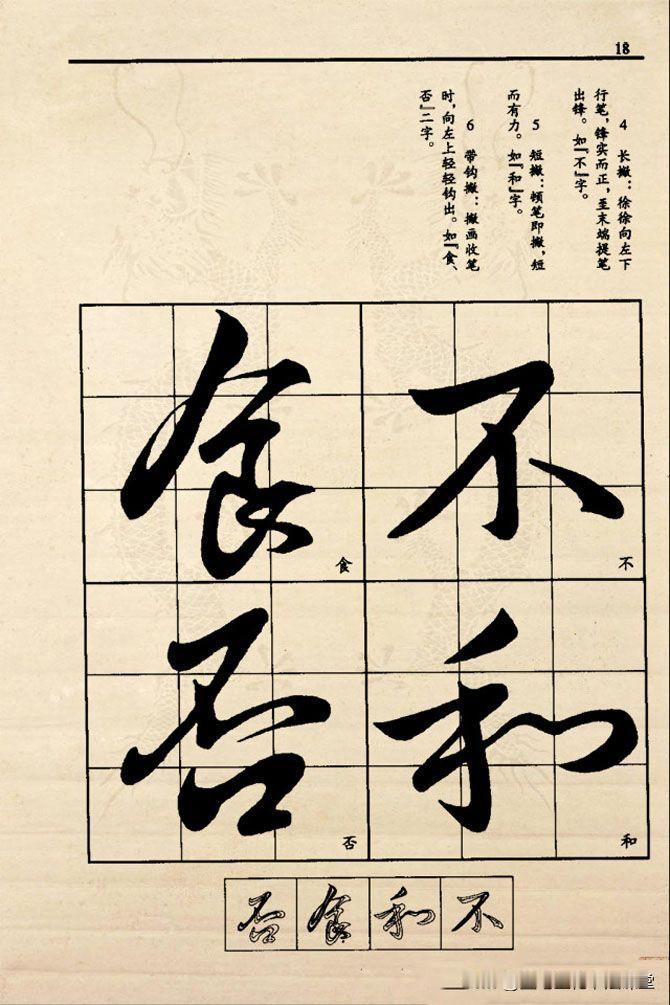 18
4 长撇：徐徐向左下
行笔，锋实而正，至末端提笔
出锋。如『不』字。
5 短撇：顿笔即撇，短
而有力。如『和』字。
6 带钩撇：撇画收笔
时，向左上轻轻钩出。如『食、
否』二字。
不
不
和
和
食
食
否
否
不和食否